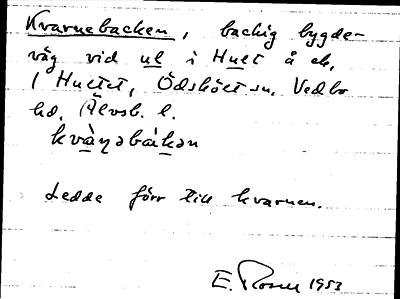 Kvarnebacken, backig bygde-
väg vid ul i Hult å ek.
1 Hultet, Ödskölt sn. Vedbo
hd. Älvsb. l.
kvàṇəbàkən
Ledde förr till kvarnen.
E. Rosen 1953